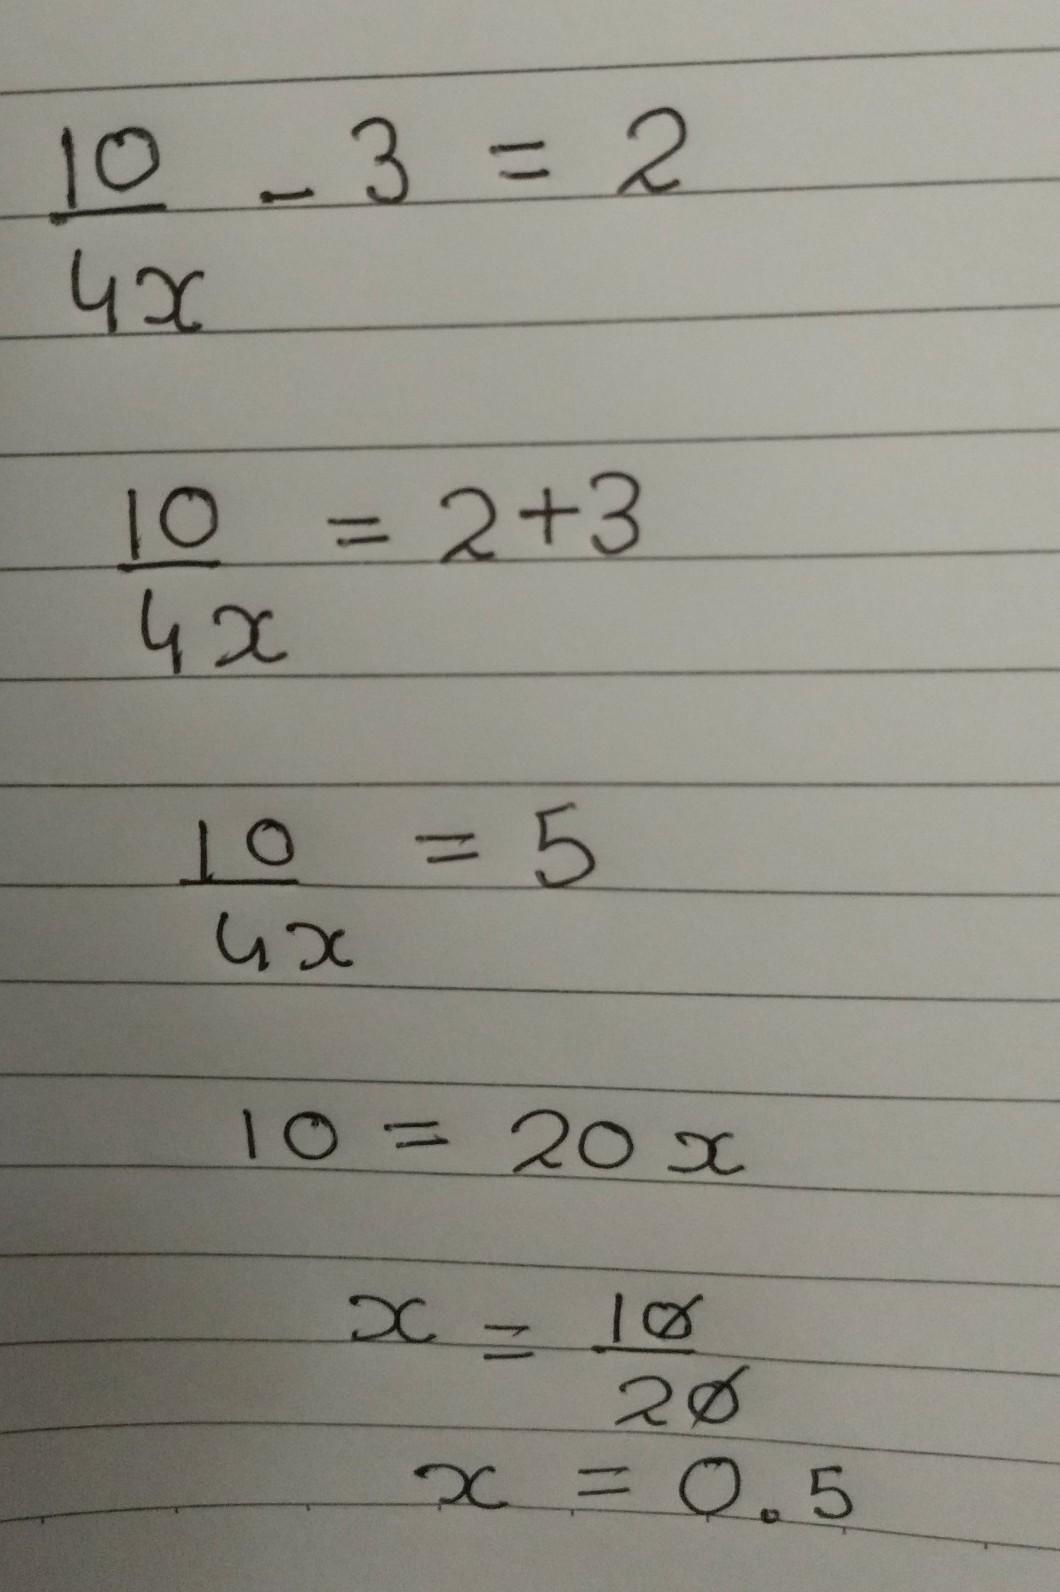 10/4x - 3 = 2
10/4x = 2+3
10/4x = 5
10 = 20x
x = 10/20
x = 0.5